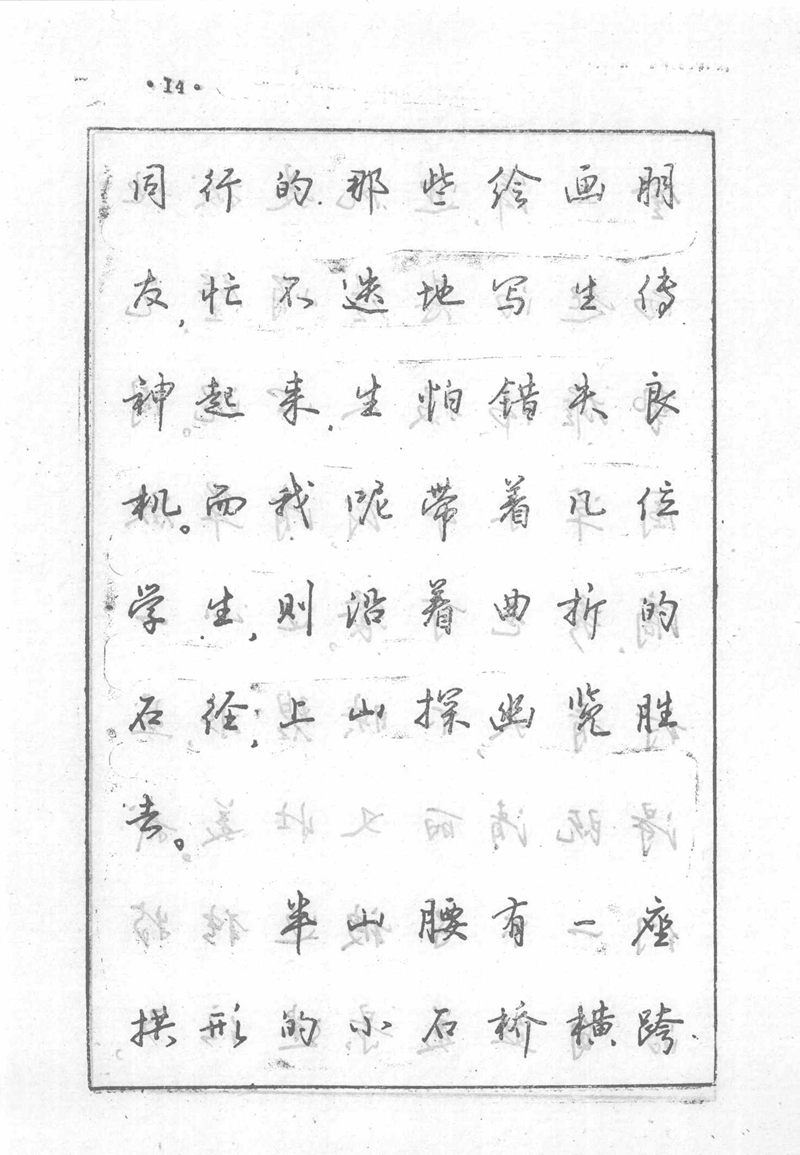 ·14·
同行的那些绘画朋
友,忙不迭地写生传
神起来,生怕错失良
机。而我呢带着几位
学生,则沿着曲折的
石径,上山探幽览胜
去。
半山腰有一座
拱形的小石桥横跨